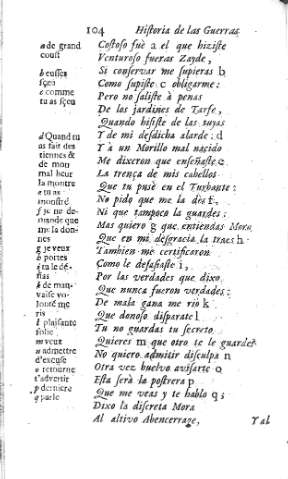 104 Historia de las Guerras
Costoso fuè a el que hiziste
Venturoso fueras Zayde,
Si conservar me supieras b
Como supiste c obligarme:
Pero no saliste à penas
De los jardines de Tarfe,
Quando hiziste de las tuyas
Y de mi desdicha alarde: d
Y à un Morillo mal nacido
Me dixeron que enseñaste e
La trença de mis cabellos
Que tu puse en el Turbante:
No pido que me la des f,
Ni que tampoco la guardes:
Mas quiero g que entiendas Moro
Que en mi desgracia la traes h:
Tambien me certificaron
Como le desafiaste i,
Por las verdades que dixo
Que nunca fueron verdades:
De mala gana me rio k
Que donoso disparate l
Tu no guardas tu secreto
Quieres m que otro te le guarde
No quiero admitir disculpa n
Otra vez buelvo avisarte o
Esta serà la postrera p
Que me veas y te hablo q;
Dixo la discreta Mora
Al altivo Abencerrage,
Y al
a de grand
coust
b eusses
sçeu
c comme
tu as sçeu
d Quand tu
as fait des
tiennes &
de mon
mal heur
la montre
e tu as
monstré
f je ne de-
mande que
me la don-
nes
g je veux
h portes
i tu le dé-
fias
k de mau-
vaise vo-
lonté me
ris
l plaisante
folie
m veux
n admettre
d'excuse
o retourne
t'advertir
p derniere
q parle